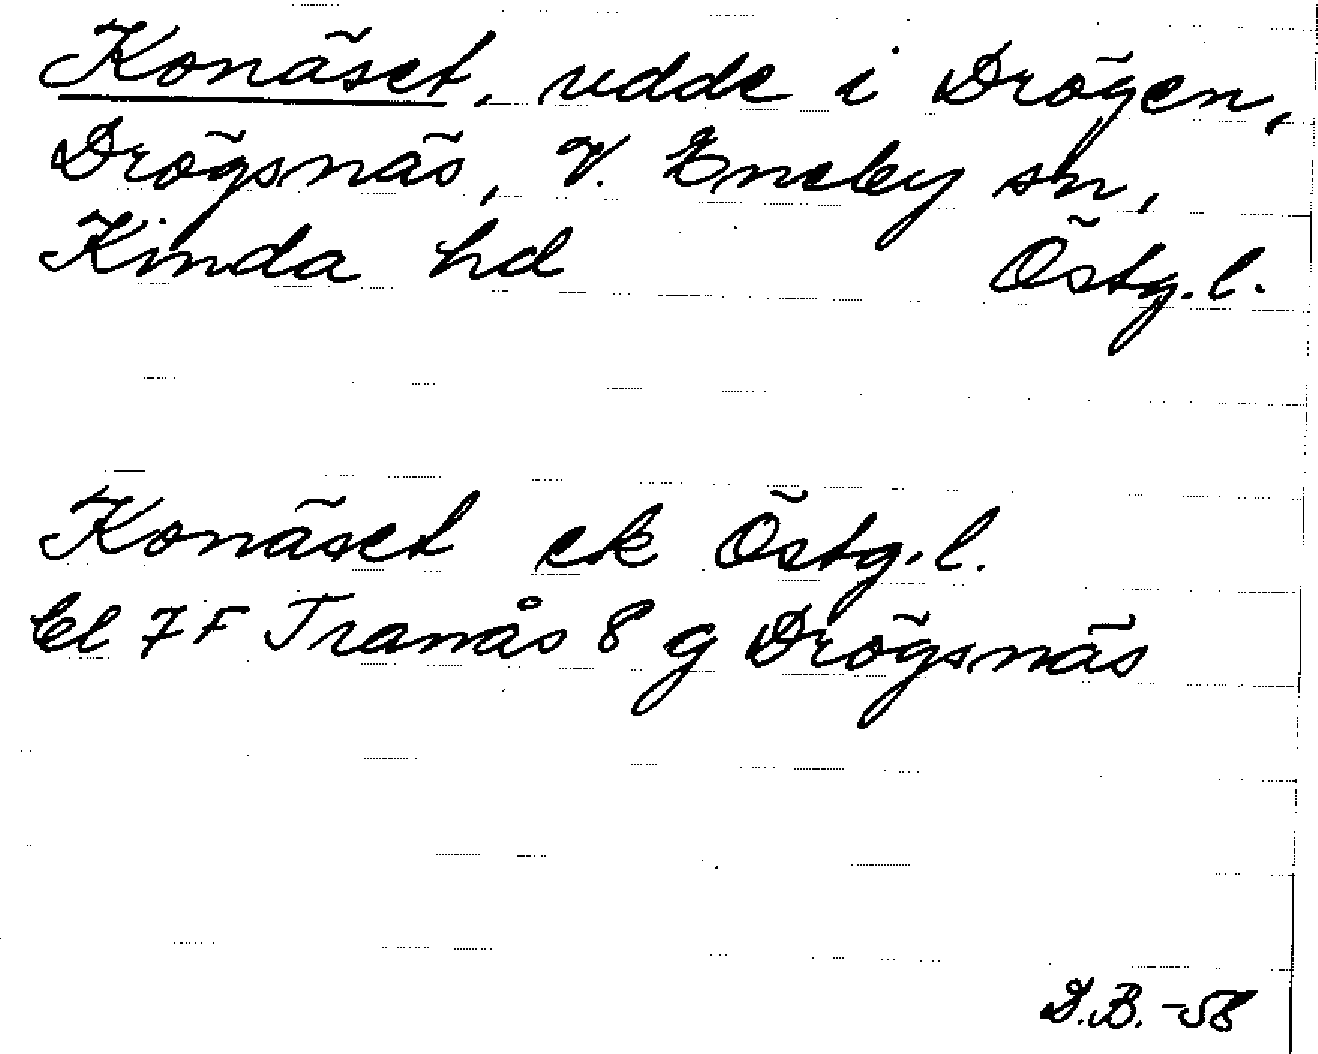 Konäset, udde i Drögen,
Drögsnäs, V. Eneby sn,
Kinda hd Östg.l.
Konäset ek Östg.l.
bl 7F Tranås 8 g Drögsnäs
D.B. -58